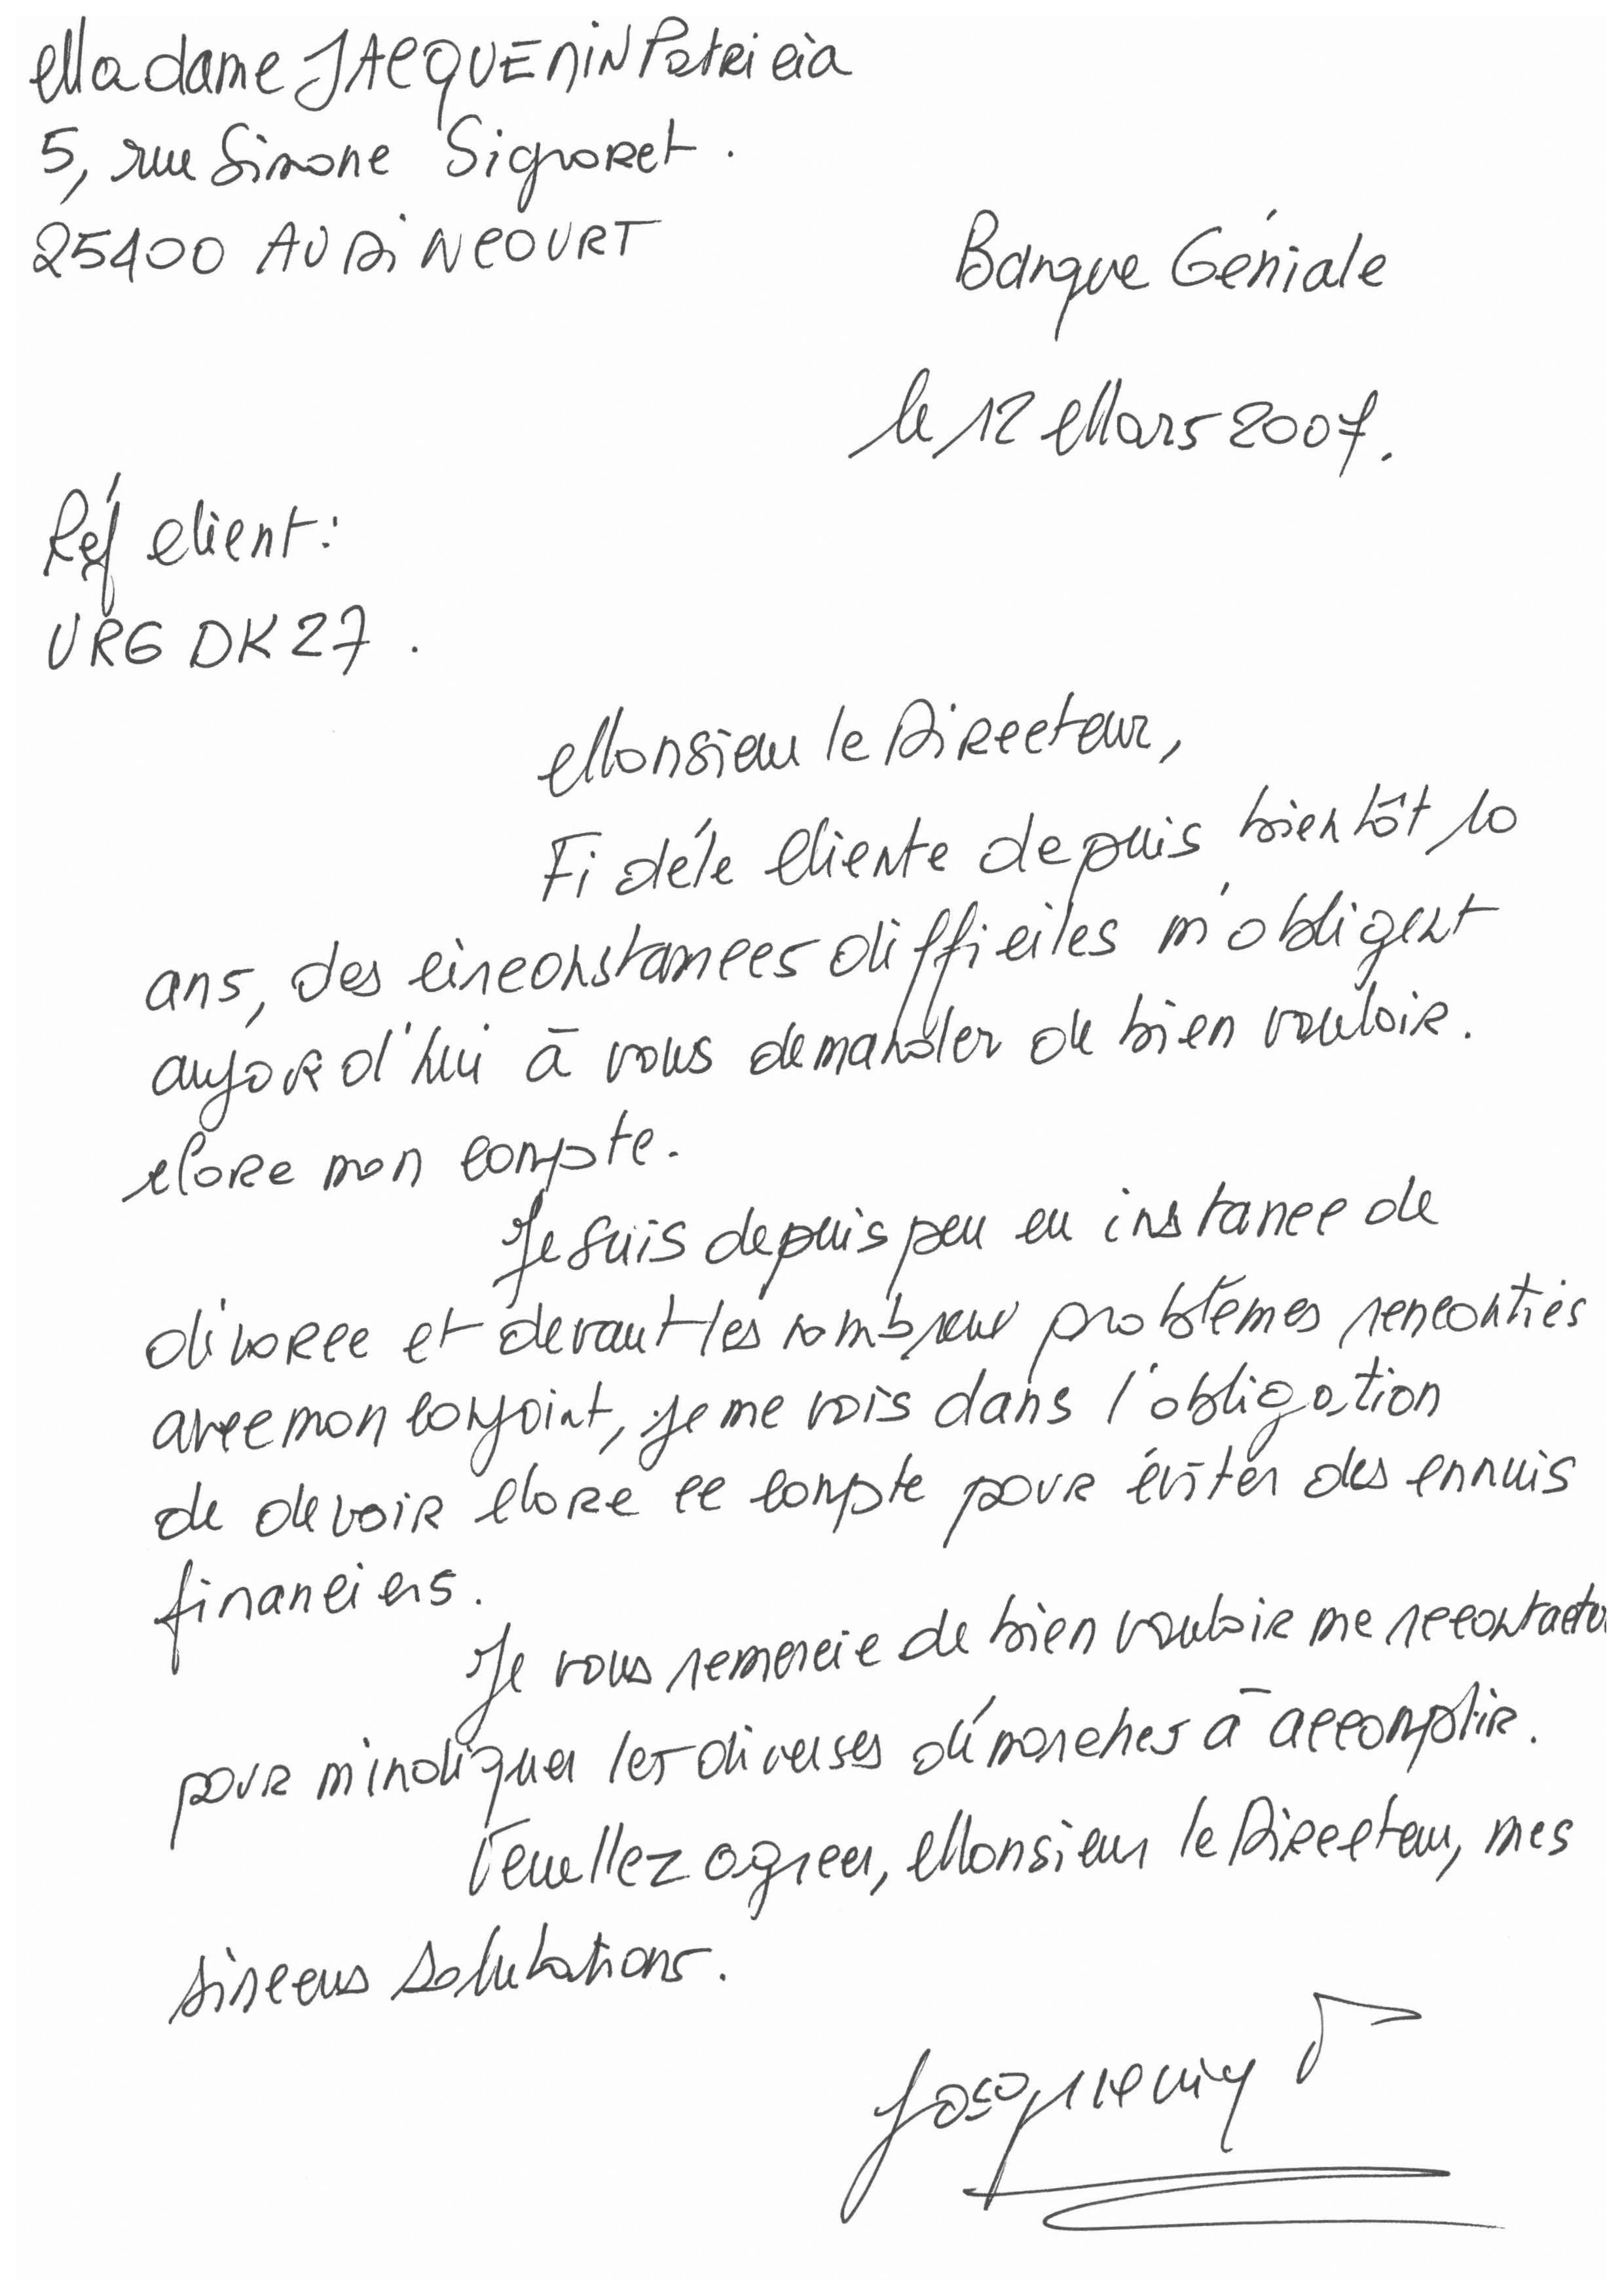 Madame JACQUENIN Patricia
5, rue Simone Signoret.
25400 AUDINCOURT
Banque Géniale
le 12 Mars 2007.
Réf client :
URG DK 27.
Monsieur le Directeur,
Fidéle Cliente depuis bientôt 10
ans, des circonstances difficiles m'obligent
aujord'hui à vous demander de bien vouloir.
clore mon compte.
Je suis depuis peu en instance de
divorce et devant les nombreux problèmes rencontrés
avec mon conjoint, je me vois dans l'obligation
de devoir clore ce compte pour éviter des ennuis
financiers.
Je vous remercie de bien vouloir me recontacter
pour m'indiquer les diverses démarches à accomplir.
Veuillez agréer, Monsieur le Directeur, mes
sincères salutations.
Jacquenin P